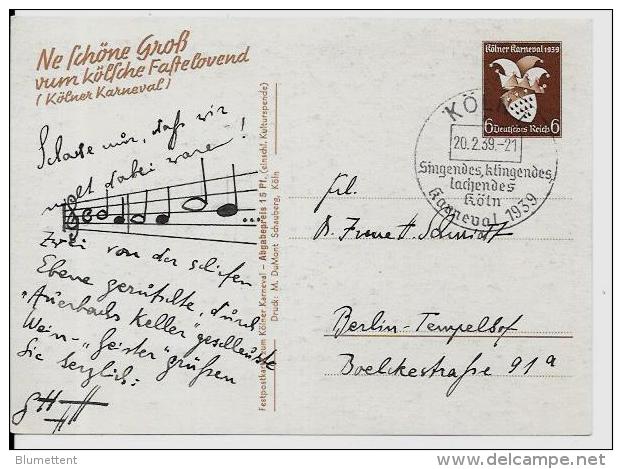 Ne schöne Groß
vum kölsche Fastelovend
(Kölner Karneval)
Schade nur, daß wir
nicht dabei waren!
Zwei von der schiefen
Ebene gerutschte, durch
"Auerbachs Keller" geschleuste
Wein-"Geister" grüßen
Sie herzlich:
Festpostkarte zum Kölner Karneval – Abgabepreis 15 Pf., (einschl. Kulturspende)
Druck: M. DuMont Schauberg, Köln
Kölner Karneval 1939
6 Deutsches Reich 6
KÖLN
20.2.39.-21
Singendes, klingendes,
lachendes
Köln
Karneval 1939
Frl.
Schmidt
Berlin-Tempelhof
Boelckestraße 91a
Blumettent
delcampe.net